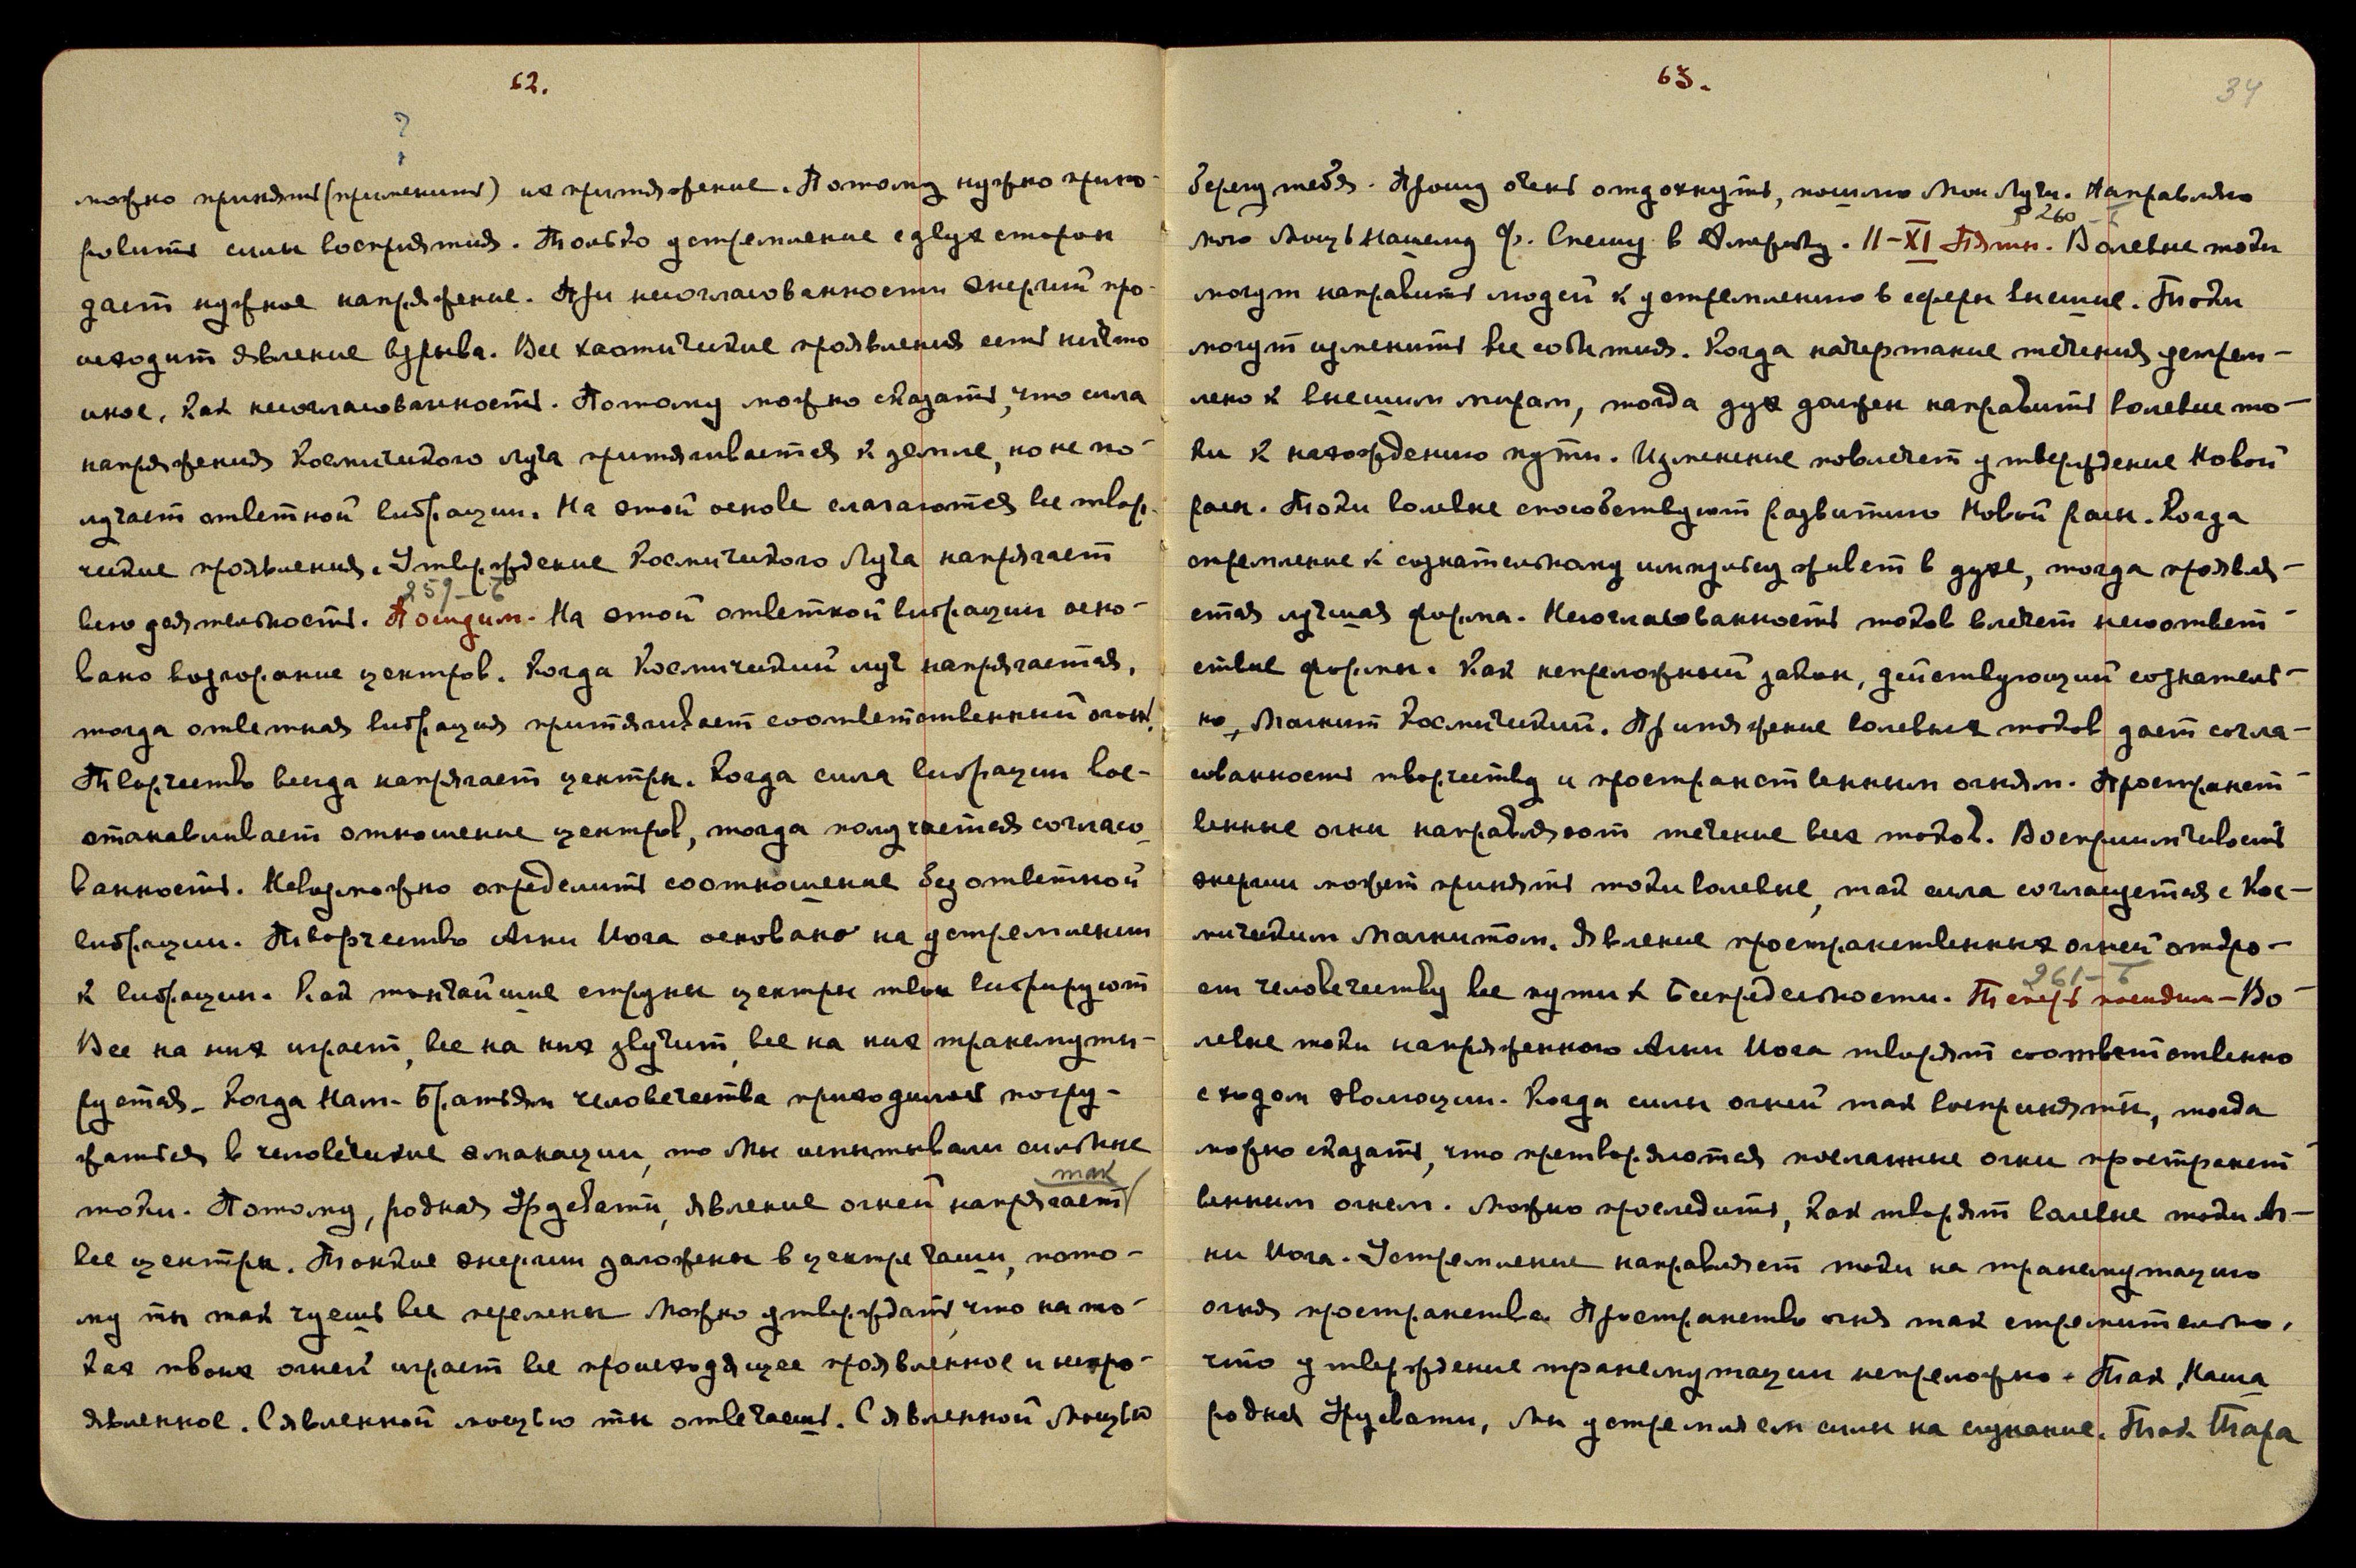 62.
?
можно принять (применить) их притяжение. Потому нужно приго-
ровить силы восприятия. Только устремление с двух сторон
дает нужное напряжение. При несогласованности энергий про-
исходит явление взрыва. Все хаотические проявления есть ничто
иное, как несогласованность. Потому можно сказать, что сила
напряжения Космического луча притягивается к земле, но не по-
лучает ответной вибрации. На этой основе слагаются все твор-
ческие проявления. Утверждение Космического Луча напрягает
259-Б
всю деятельность. Посидим. На этой ответной вибрации осно-
вано возгорание центров. Когда Космический луч напрягается,
тогда ответная вибрация притягивает соответственный огонь.
Творчество всегда напрягает центры. Когда сила вибрации вос-
станавливает отношение центров, тогда получается согласо-
ванность. Невозможно определить соотношение без ответной
вибрации. Творчество Агни Йога основано на устремлении
к вибрации. Как тончайшие струны центры твои вибрируют
Все на них играет, все на них звучит, все на них трансмути-
руется. Когда Нам- Братьям человечества приходилось погру-
жаться в человеческие эманации, то Мы испытывали сильные
так
токи. Потому, родная Урусвати, явление огней напрягает
все центры. Тонкие энергии заложены в центре чаши, пото-
му ты так чуешь все перемены Можно утверждать, что на то-
ках твоих огней играет все происходящее проявленное и непро-
явленное. С явленной мощью ты отвечаешь. С явленной Мощью
63.
34
берегу тебя. Прошу очень отдохнуть, пошлю Мои Лучи. Направляю
260-Б
мою Мощь Нашему Ф. Спешу в Америку. 11-XI Пятн. Волевые токи
могут направить людей к устремлению в сферы высшие. Токи
могут изменить все события. Когда начертание течения устрем-
лено к высшим мирам, тогда дух должен направить волевые то-
ки к нахождению пути. Изменение повлечет утверждение Новой
расы. Токи волевые способствуют развитию Новой расы. Когда
стремление к сознательному импульсу живет в духе, тогда проявля-
ется лучшая форма. Несогласованность токов влечет несоответ-
ствие формы. Как непреложный закон, действующий сознатель-
но, Магнит Космический. Притяжение волевых токов дает согла-
сованность творчеству и пространственным огням. Пространст-
венные огни направляют течение всех токов. Восприимчивость
энергии может принять токи волевые, так сила согласуется с Кос-
мическим Магнитом. Явление пространственных огней откро-
261-Б
ет человечеству все пути к Беспредельности. Теперь посидим- Во-
левые токи напряженного Агни Йога творят соответственно
с ходом эволюции. Когда силы огней так восприняты, тогда
можно сказать, что претворяются посланные огни пространст-
венным огнем. Можно проследить, как творят волевые токи Аг-
ни Йога. Устремление направляет токи на трансмутацию
огня пространства. Пространство огня так стремительно,
что утверждение трансмутации непреложно. Так, Наша
родная Урусвати, Мы устремляем силы на слукание. Так Тара